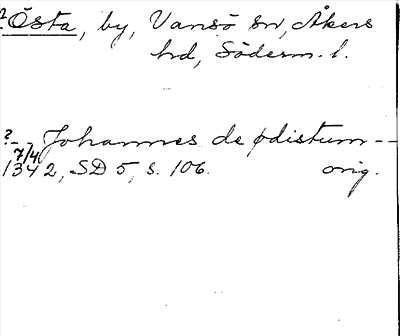 Östa, by, Vansö sn, Åkers
hd, Söderm. l.
?- - Johannes de ødistum - -
7/4
1342, SD 5, s. 106. orig.